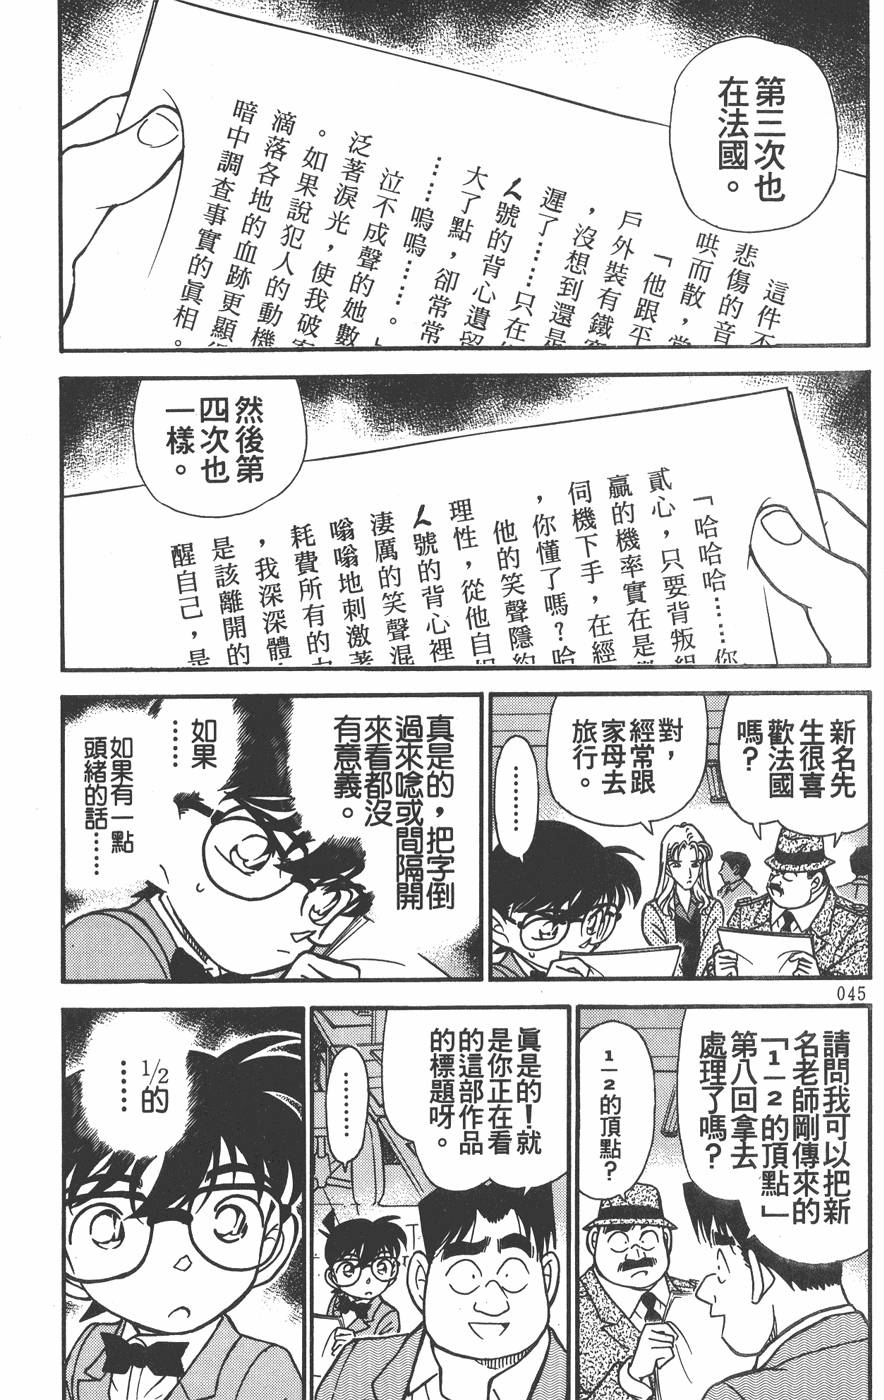 第三次也
在法國。
這件不
悲傷的音
哄而散，當
「他跟平
戶外裝有鐵
，沒想到還是
遲了……只在
L號的背心遺留
大了點，卻常常
……嗚嗚……。」
泣不成聲的她數
泛著淚光，使我破案
。如果說犯人的動機
滴落各地的血跡更顯
暗中調查事實的眞相。
然後第
四次也
一樣。
「哈哈哈……你
貳心，只要背叛組
贏的機率實在是
伺機下手，在經
，你懂了嗎？哈
他的笑聲隱約
理性，從他自
L號的背心裡
淒厲的笑聲混
嗡嗡地刺激著
耗費所有的
，我深深體
是該離開的
醒自己，是
新名先
生很喜
歡法國
嗎？
對，
經常跟
家母去
旅行。
……
真是的，把字倒
過來唸或間隔開
來看都沒
有意義。
如果
……
如果有一點
頭緒的話……
045
請問我可以把新
名老師剛傳來的
「1—2的頂點」
第八回拿去
處理了嗎？
1—2的頂點？
眞是的！就
是你正在看
的這部作品
的標題呀。
……
1/2的
……